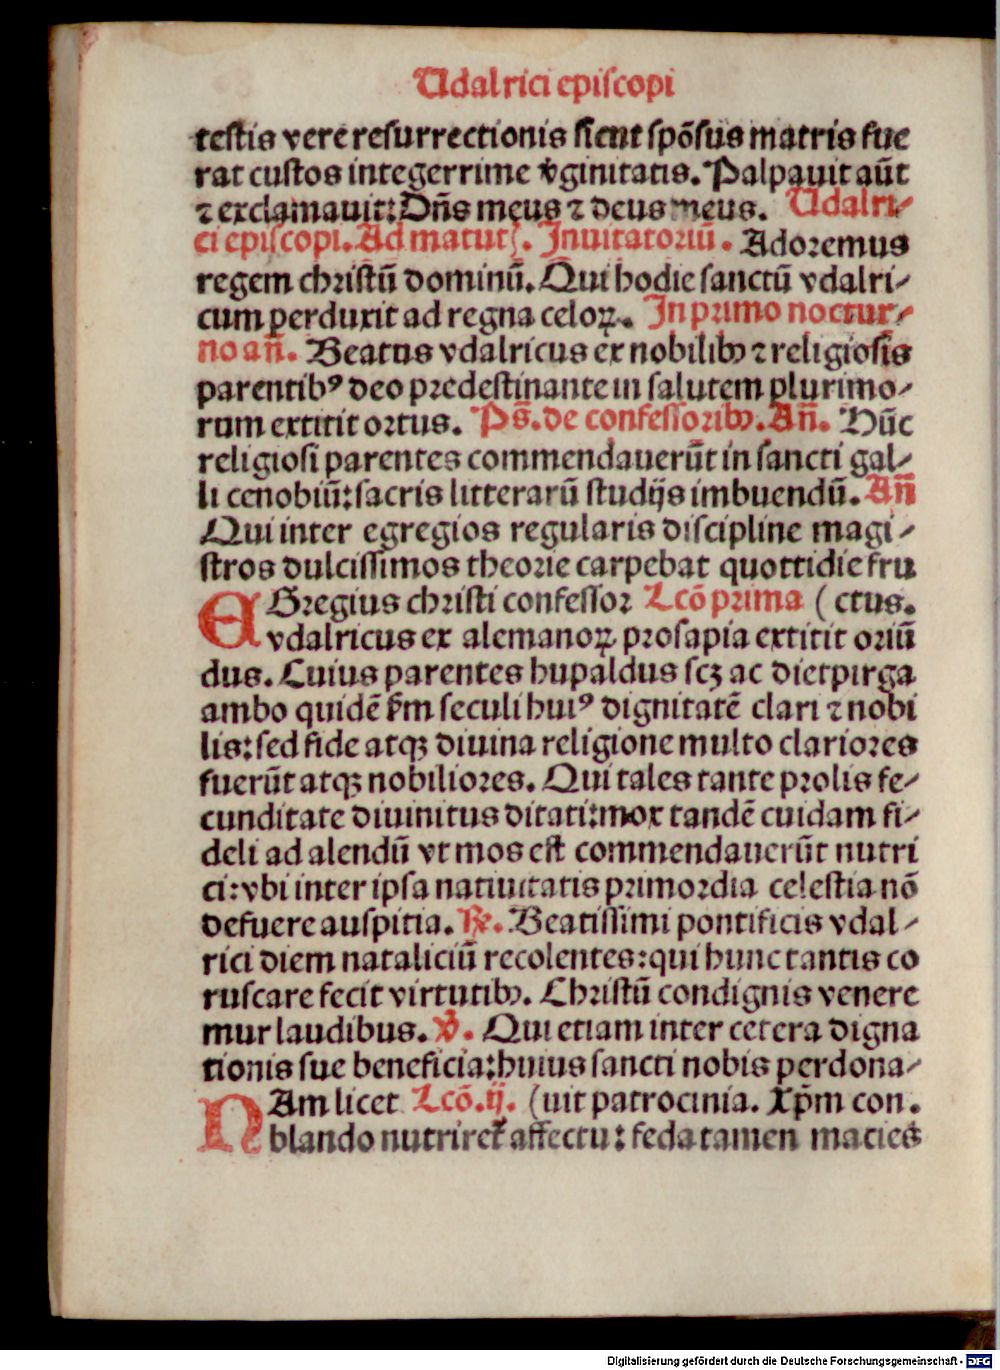 Udalrici episcopi
testis vere resurrectionis sicut spōsus matris fue
rat custos integerrime v̄ginitatis. Palpauit aūt
⁊ exclamauit: Dn̄s meus ⁊ deus meus. Udalri-
ci episcopi. Ad matut̄. Inuitatoriū. Adoremus
regem christū dominū. Qui hodie sanctū vdalri-
cum perduxit ad regna celoꝝ. In primo noctur-
no an̄. Beatus vdalricus ex nobilibꝰ ⁊ religiosis
parentibꝰ deo predestinante in salutem plurimo-
rum extitit ortus. Ps̄. de confessoribꝰ. An̄. Hūc
religiosi parentes commendauerūt in sancti gal-
li cenobiū: sacris litterarū studijs imbuendū. An̄
Qui inter egregios regularis discipline magi-
stros dulcissimos theorie carpebat quottidie fru
EGregius christi confessor Lcō prima (ctus.
vdalricus ex alemanoꝝ prosapia extitit oriū
dus. Cuius parentes hupaldus scꝫ ac dietpirga
ambo quidē ẜm seculi huiꝰ dignitatē clari ⁊ nobi
lis: sed fide atqꝫ diuina religione multo clariores
fuerūt atqꝫ nobiliores. Qui tales tante prolis fe-
cunditate diuinitus ditati: mox tandē cuidam fi-
deli ad alendū vt mos est commendauerūt nutri
ci: vbi inter ipsa natiuitatis primordia celestia nō
defuere auspitia. ℟. Beatissimi pontificis vdal-
rici diem nataliciū recolentes: qui hunc tantis co
ruscare fecit virtutibꝰ. Christū condignis venere
mur laudibus. ℣. Qui etiam inter cetera digna
tionis sue beneficia: huius sancti nobis perdona-
NAm licet Lcō. ij. (uit patrocinia. Xp̄m con.
blando nutriret᷑ affectu: feda tamen macies
Digitalisierung gefördert durch die Deutsche Forschungsgemeinschaft - DFG